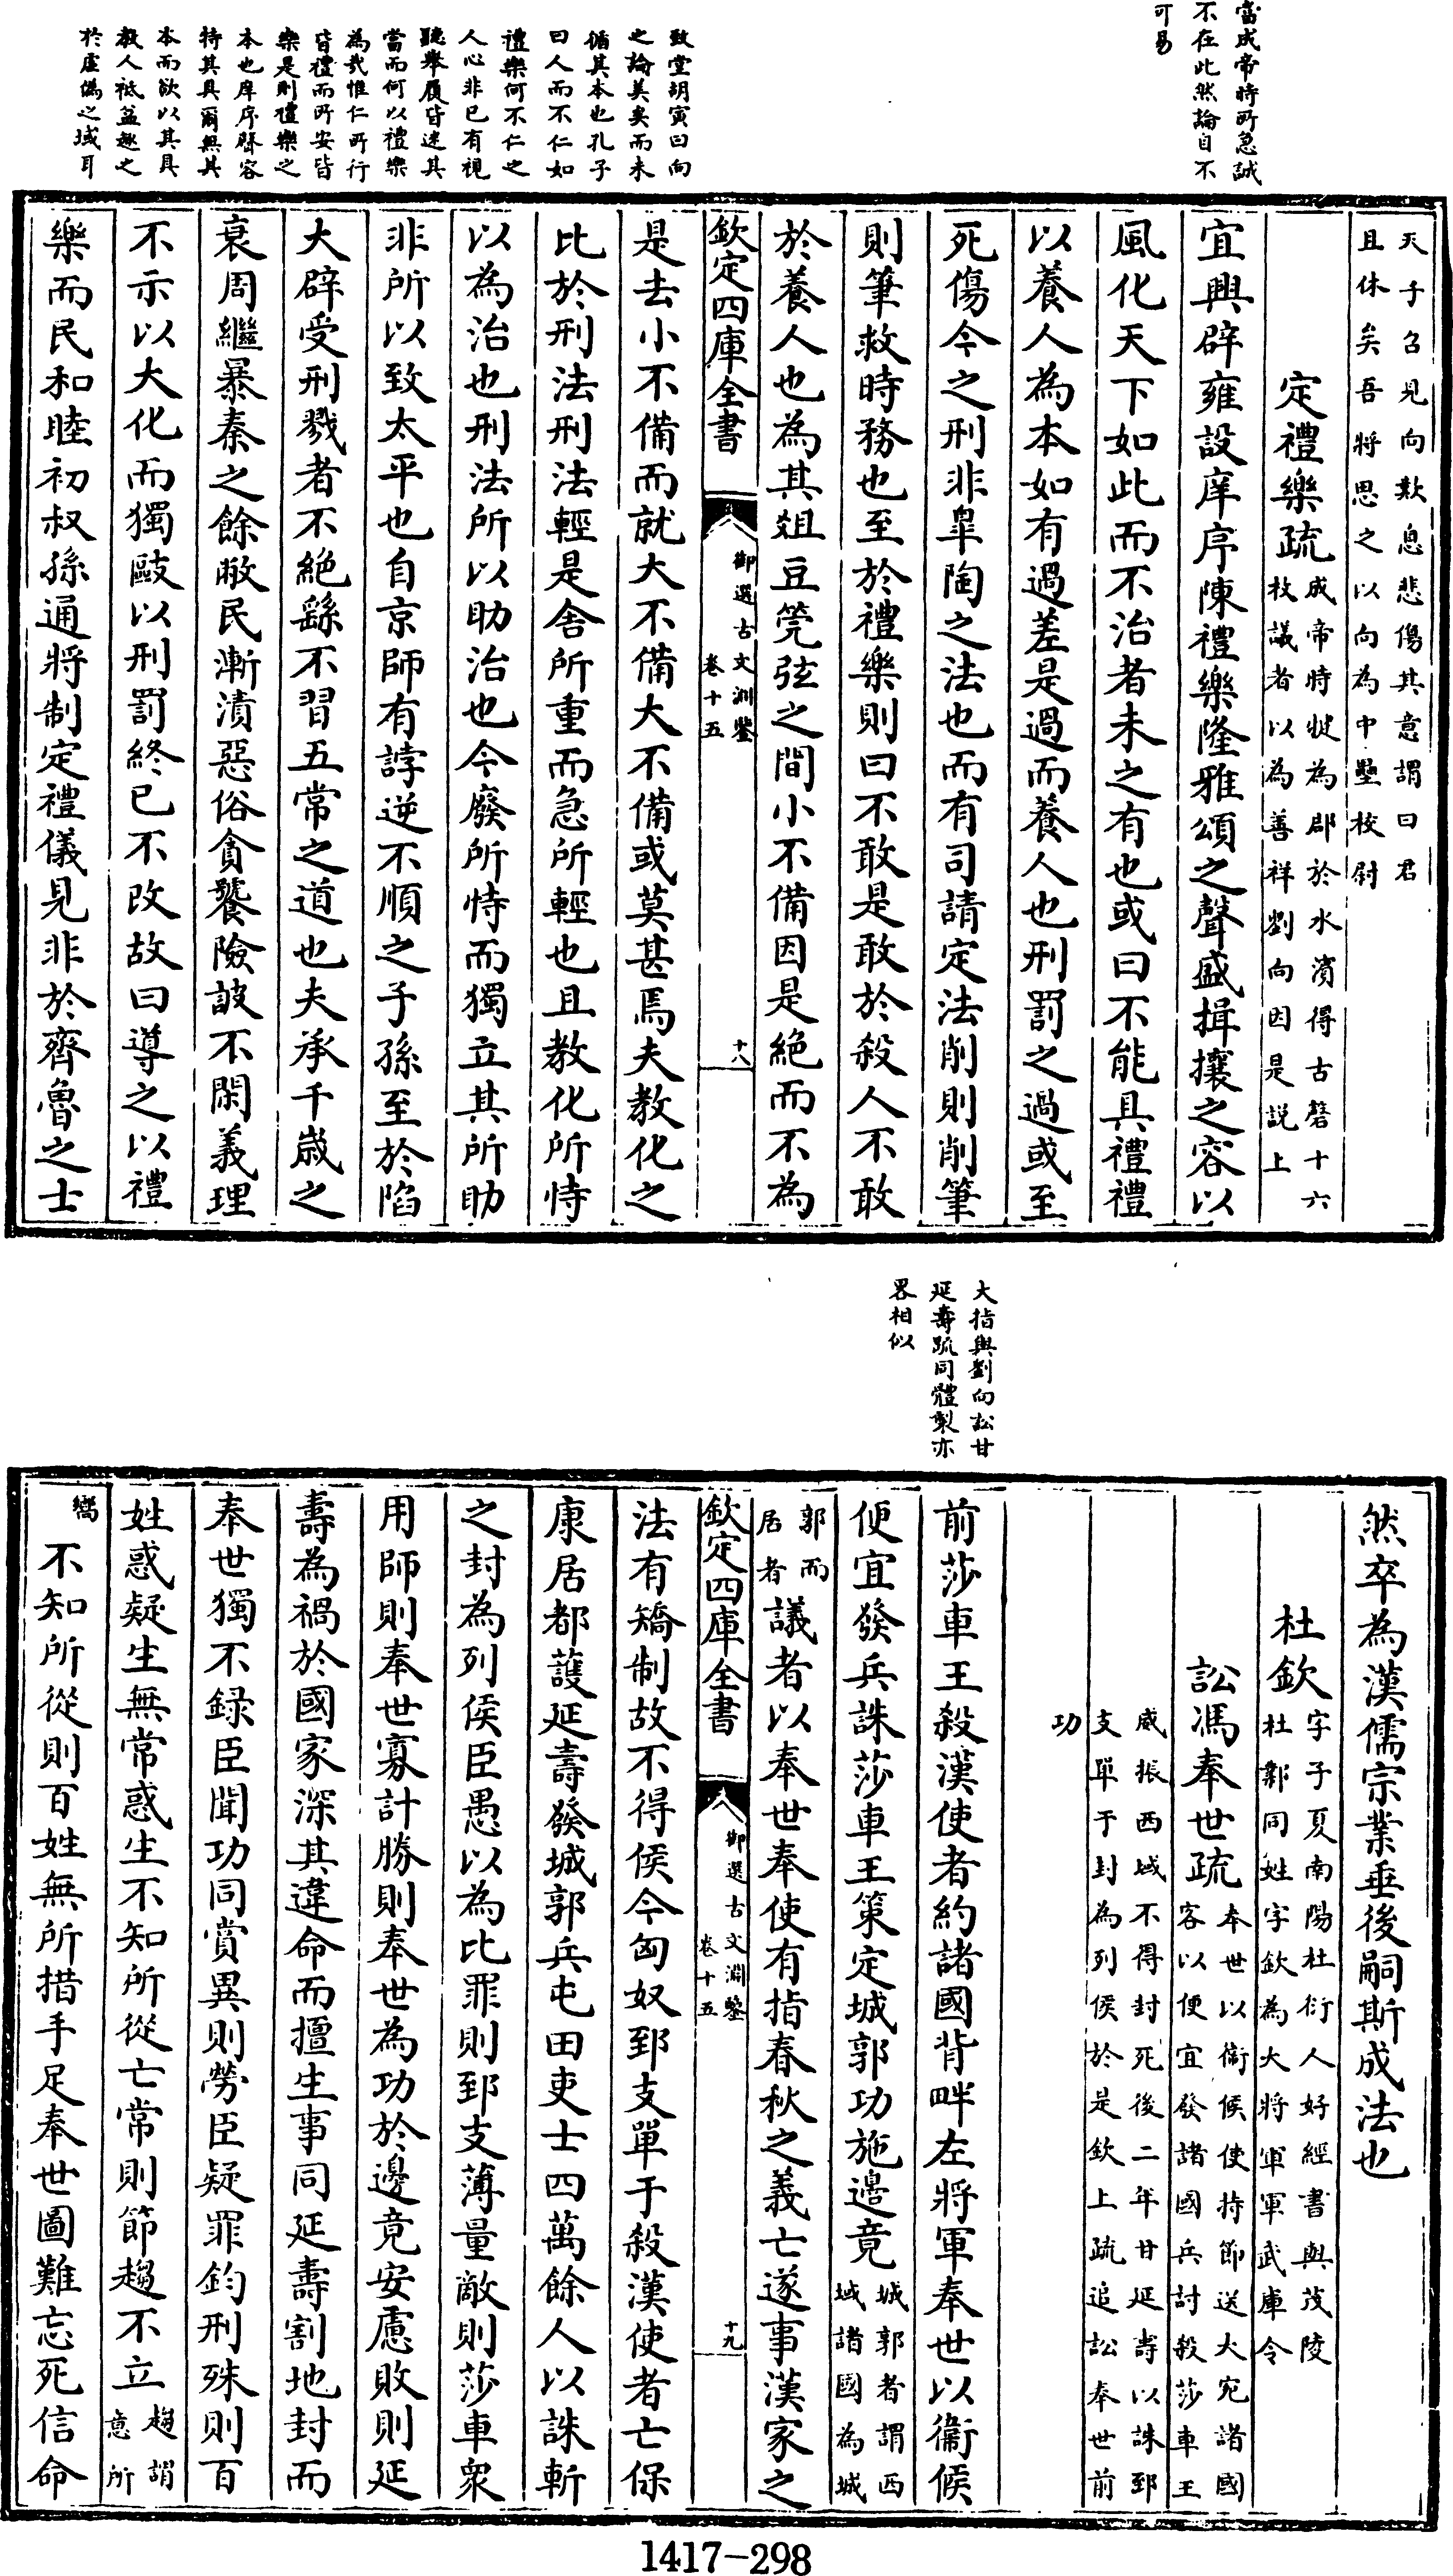 當成帝時所急誠
不在此然論自不
可易
致堂胡寅曰向
之論美矣而未
循其本也孔子
曰人而不仁如
禮樂何不仁之
人心非已有視
聽舉履皆迷其
當而何以禮樂
為哉惟仁所行
皆禮而所安皆
樂是則禮樂之
本也庠序聲容
特其具爾無其
本而欲以其具
教人祗益趣之
於虛偽之域耳
天子召見向歎息悲傷其意謂曰君
且休矣吾將思之以向為中壘校尉
定禮樂疏成帝時犍為郡於水濱得古磬十六
枚議者以為善祥劉向因是說上
宜興辟雍設庠序陳禮樂隆雅頌之聲盛揖攘之容以
風化天下如此而不治者未之有也或曰不能具禮禮
以養人為本如有過差是過而養人也刑罰之過或至
死傷今之刑非皐陶之法也而有司請定法削則削筆
則筆救時務也至於禮樂則曰不敢是敢於殺人不敢
於養人也為其俎豆筦弦之間小不備因是絶而不為
欽定四庫全書
御選古文淵鑒
卷十五
十八
是去小不備而就大不備大不備或莫甚焉夫教化之
比於刑法刑法輕是舍所重而急所輕也且教化所恃
以為治也刑法所以助治也今廢所恃而獨立其所助
非所以致太平也自京師有誖逆不順之子孫至於陷
大辟受刑戮者不絶繇不習五常之道也夫承千歲之
衰周繼暴秦之餘敝民漸漬惡俗貪饕險詖不閑義理
不示以大化而獨敺以刑罰終已不改故曰導之以禮
樂而民和睦初叔孫通將制定禮儀見非於齊魯之士
大指與劉向訟甘
延壽疏同體製亦
畧相似
然卒為漢儒宗業垂後嗣斯成法也
杜欽字子夏南陽杜衍人好經書與茂陵
杜鄴同姓字欽為大將軍軍武庫令
訟馮奉世疏奉世以衞候使持節送大宛諸國
客以便宜發諸國兵討殺莎車王
威振西域不得封死後二年甘延壽以誅郅
支單于封為列侯於是欽上疏追訟奉世前
功
前莎車王殺漢使者約諸國背畔左將軍奉世以衞候
便宜發兵誅莎車王策定城郭功施邊竟城郭者謂西
域諸國為城
郭而
居者議者以奉世奉使有指春秋之義亡遂事漢家之
欽定四庫全書
御選古文淵鑒
卷十五
十九
法有矯制故不得侯今匈奴郅支單于殺漢使者亡保
康居都護延壽發城郭兵屯田吏士四萬餘人以誅斬
之封為列侯臣愚以為比罪則郅支薄量敵則莎車眾
用師則奉世寡計勝則奉世為功於邊竟安慮敗則延
壽為禍於國家深其違命而擅生事同延壽割地封而
奉世獨不録臣聞功同賞異則勞臣疑罪鈞刑殊則百
姓惑疑生無常惑生不知所從亡常則節趨不立趨謂
意所
嚮不知所從則百姓無所措手足奉世圖難忘死信命
1417-298